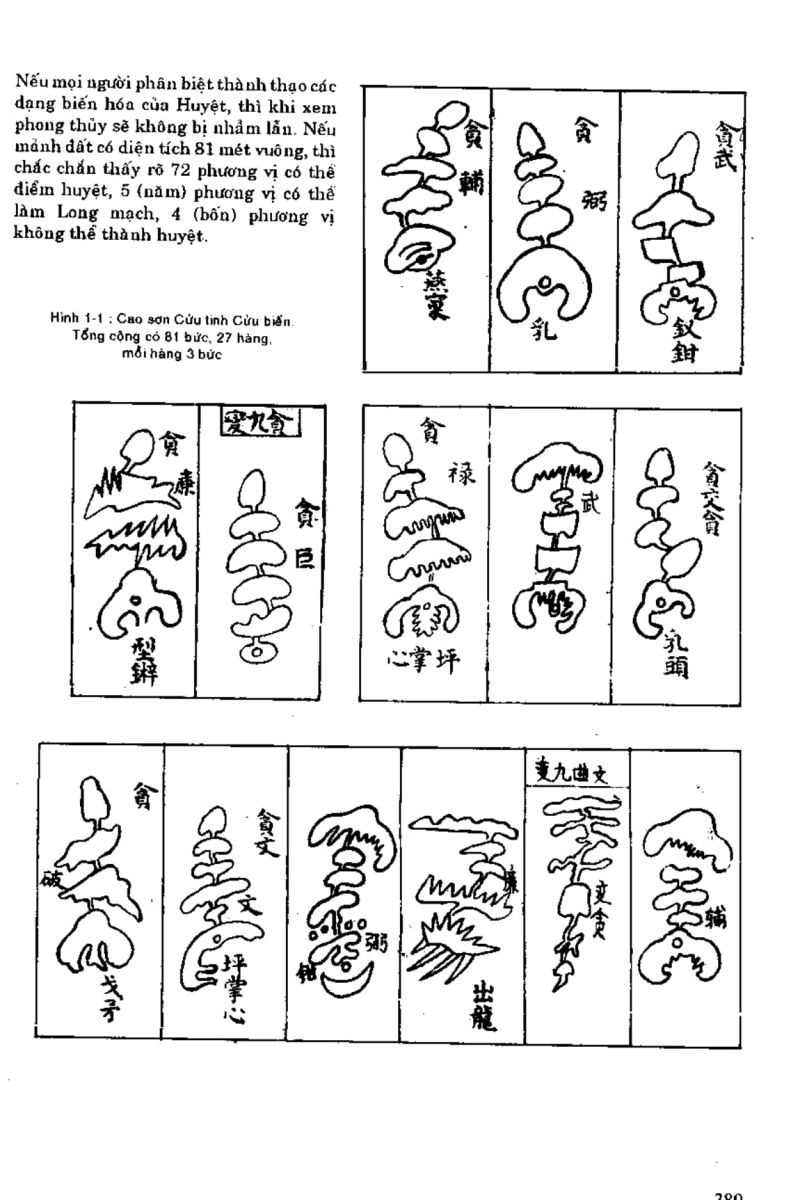 Nếu mọi người phân biệt thành thạo các
dạng biến hóa của Huyệt, thì khi xem
phong thủy sẽ không bị nhầm lẫn. Nếu
mảnh đất có diện tích 81 mét vuông, thì
chắc chắn thấy rõ 72 phương vị có thể
điểm huyệt, 5 (năm) phương vị có thể
làm Long mạch, 4 (bốn) phương vị
không thể thành huyệt.
Hình 1-1 : Cao sơn Cửu tinh Cửu biến.
Tổng cộng có 81 bức, 27 hàng,
mỗi hàng 3 bức
貪
輔
燕窠
貪
弼
乳
貪武
釵鉗
貪
廉
變九貪
貪巨
貪
祿
心掌坪
武
貪文貪
乳頭
貪
破
戈矛
貪文
文
坪掌心
弼
鉗
廉
出龍
變九曲文
变貪
辅